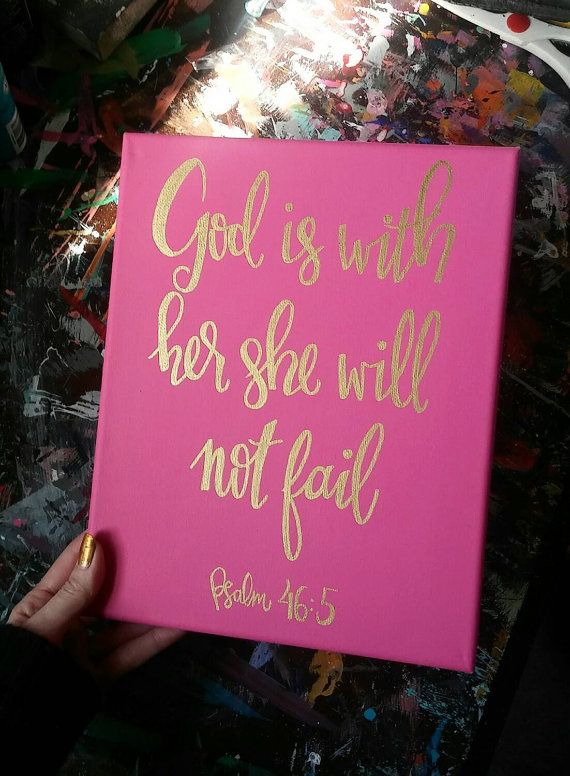 God is with
her she will
not fail
Psalm 46:5